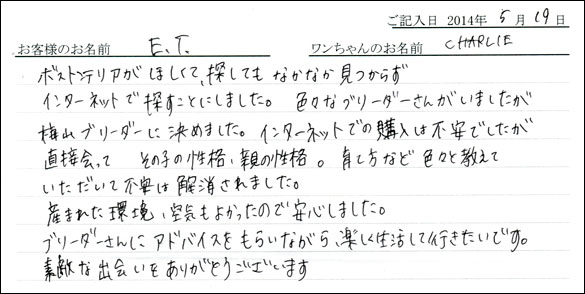 ご記入日 2014年 5月 19日
お客様のお名前 E.T. ワンちゃんのお名前 CHARLIE
ボストンテリアがほしくて、探してもなかなか見つからず
インターネットで探すことにしました。 色々なブリーダーさんがいましたが
梅山ブリーダーに決めました。インターネットでの購入は不安でしたが
直接会って その子の性格、親の性格。育て方など色々と教えて
いただいて不安は解消されました。
産まれた環境、空気もよかったので安心しました。
ブリーダーさんにアドバイスをもらいながら、楽しく生活して行きたいです。
素敵な出会いをありがとうございます